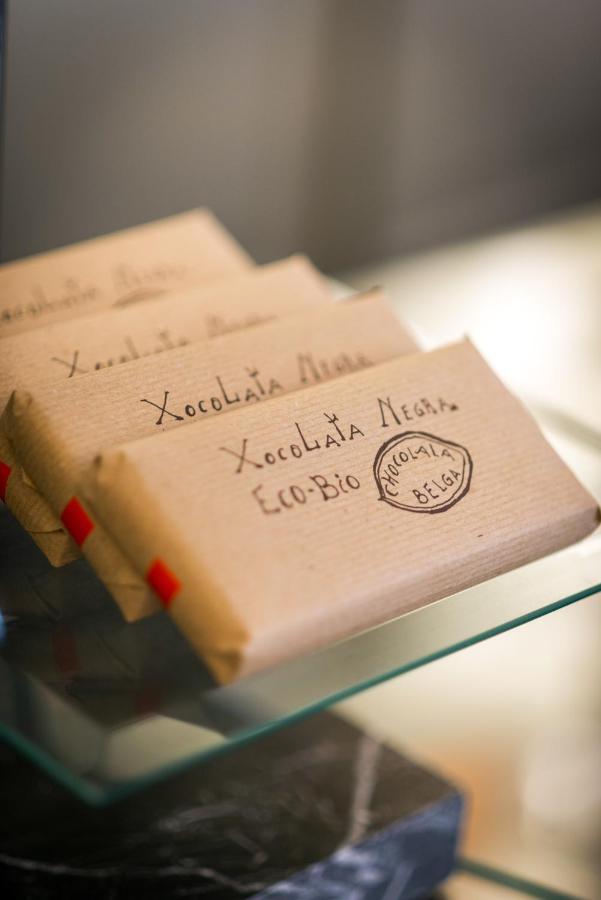 Xocolata Negra
Xocolata Negra
Xocolata Negra
Xocolata Negra
Eco-Bio
CHOCOLALA
BELGA